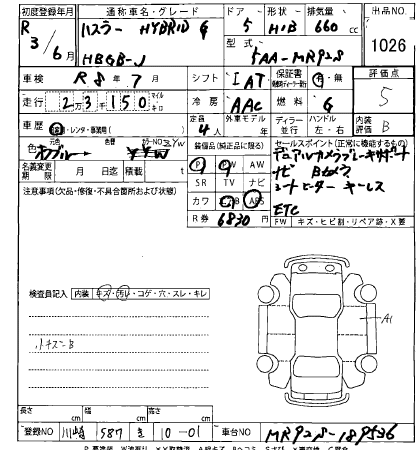 初度登録年月 通称車名・グレード ドア 形状 排気量 出品No.
R3/6月 ハスラー HYBRID G 5 HIB 660cc 1026
HBGB-J 型式 5AA-MR92S
車検 R8年7月 シフト IAT 保証書 有・無 評価点 5
走行 23千150 マイル キロ 冷房 AAC 燃料 G
車歴 レンタ・事業用 定員 4人 外車モデル 年 ディーラー 並行 ハンドル 左・右 内装評価 B
色 元色 色替 カラーNO. 装備品(純正品に限る) セールスポイント(正常に機能するもの)
名義変更期限 月 日迄 積載 t PS PW AW デュアルカメラブレーキサポート
注意事項(欠品・修復・不具合箇所および状態) SR TV ナビ ナビ Bカメラ
カワ ABS シートヒーター キーレス
R券 6830円 ETC
FW キズ・ヒビ割・リペア跡・X要
検査員記入 内装 キズ・汚レ・コゲ・穴・スレ・キレ
A1
長さ cm 幅 cm 高さ cm
登録NO 川崎 587 き 10-01 車台NO MR92S-189536